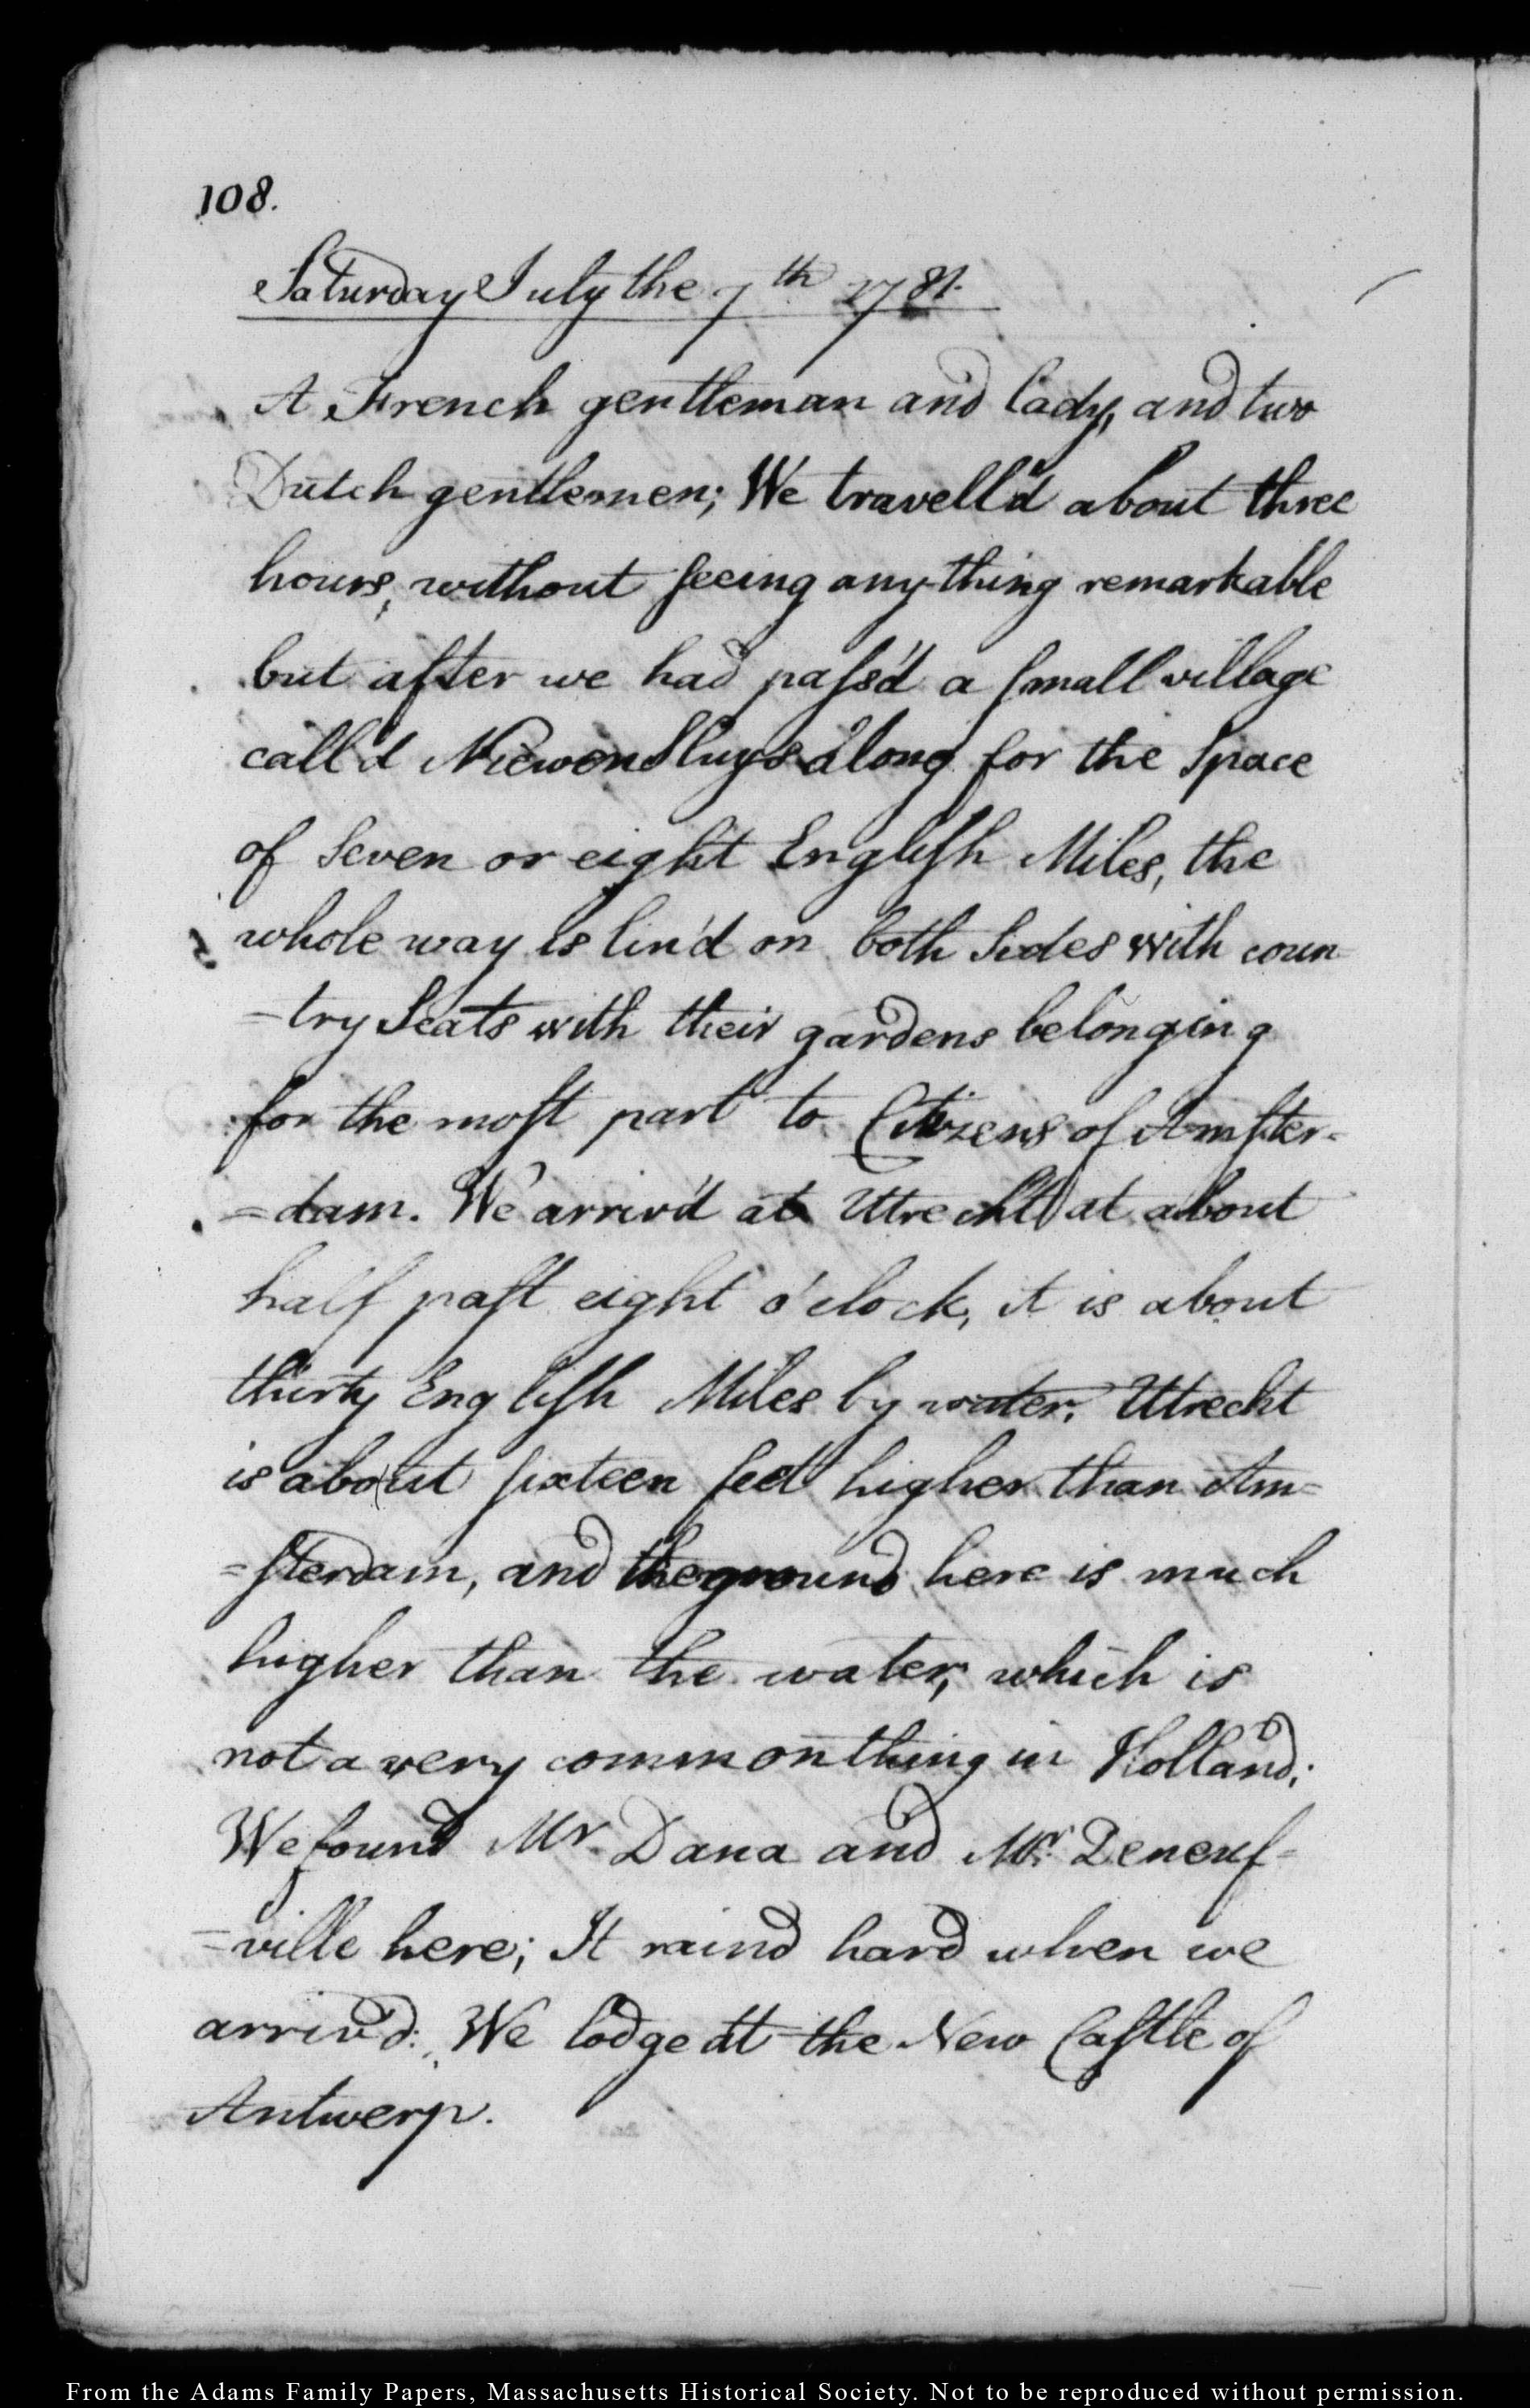 108.
Saturday July the 7th 1781.
A French gentleman and lady, and two
Dutch gentlemen; We travell'd about three
hours, without seeing any thing remarkable
but after we had pass'd a small village
call'd Niewen Sluys along for the Space
of Seven or eight English Miles, the
whole way is lin'd on both Sides with coun
=try Seats with their gardens belonging
for the most part to Citizens of Amster-
=dam. We arriv'd at Utrecht at about
half past eight o'clock, it is about
thirty English Miles by water. Utrecht
is about sixteen feet higher than Am=
=sterdam, and the ground here is much
higher than the water, which is
not a very common thing in Holland;
We found Mr. Dana and Mr. Deneuf-
=ville here; It raind hard when we
arriv'd: We lodge at the New Castle of
Antwerp.
From the Adams Family Papers, Massachusetts Historical Society. Not to be reproduced without permission.